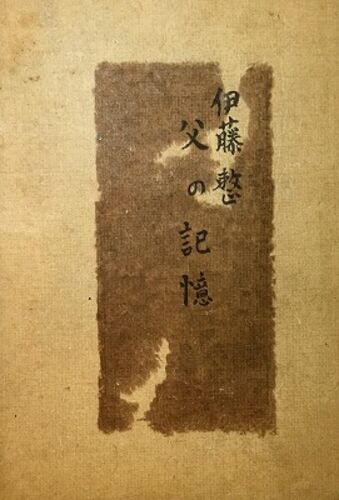 伊藤整
父の記憶